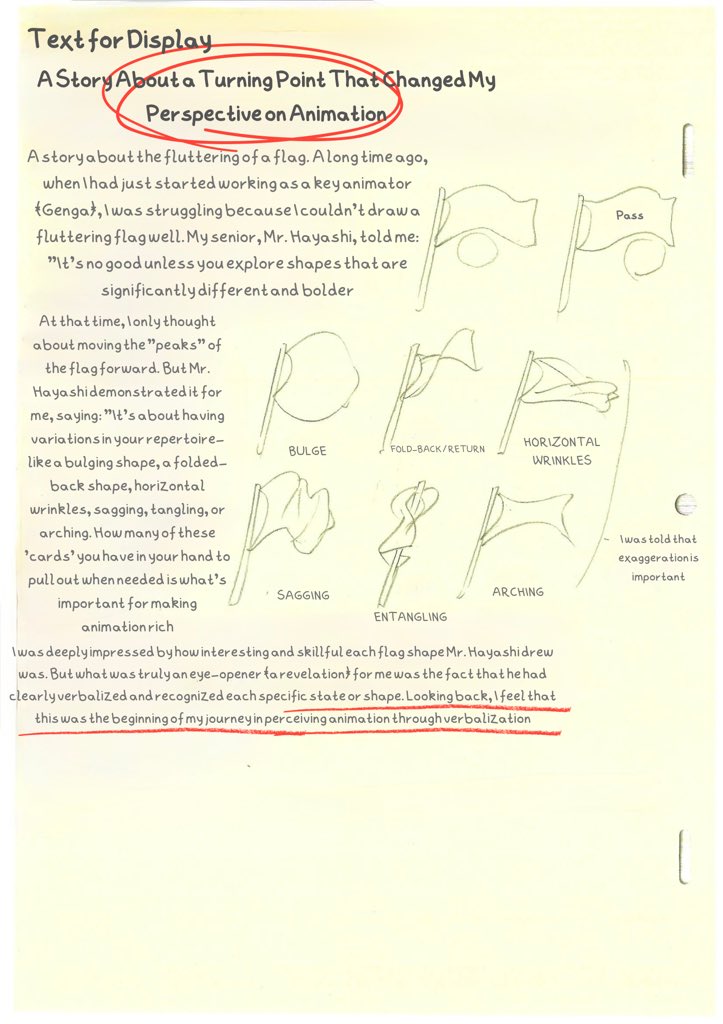 Text for Display
A Story About a Turning Point That Changed My
Perspective on Animation
A story about the fluttering of a flag. A long time ago,
when I had just started working as a key animator
(Genga), I was struggling because I couldn't draw a
fluttering flag well. My senior, Mr. Hayashi, told me:
"It's no good unless you explore shapes that are
significantly different and bolder
Pass
At that time, I only thought
about moving the "peaks" of
the flag forward. But Mr.
Hayashi demonstrated it for
me, saying: "It's about having
variations in your repertoire–
like a bulging shape, a folded–
back shape, horizontal
wrinkles, sagging, tangling, or
arching. How many of these
'cards' you have in your hand to
pull out when needed is what's
important for making
animation rich
BULGE
FOLD-BACK/RETURN
HORIZONTAL
WRINKLES
SAGGING
ENTANGLING
ARCHING
– I was told that
exaggeration is
important
I was deeply impressed by how interesting and skillful each flag shape Mr. Hayashi drew
was. But what was truly an eye–opener (a revelation) for me was the fact that he had
clearly verbalized and recognized each specific state or shape. Looking back, I feel that
this was the beginning of my journey in perceiving animation through verbalization